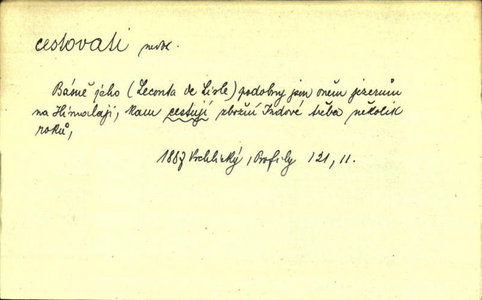 cestovati nedok.
Básně jeho (Leconta de Lisle) podobny jsou oněm jezerům
na Himalaji, kam cestují zbožní Indové třeba několik
roků,
1887 Vrchlický, Profily 121, 11.